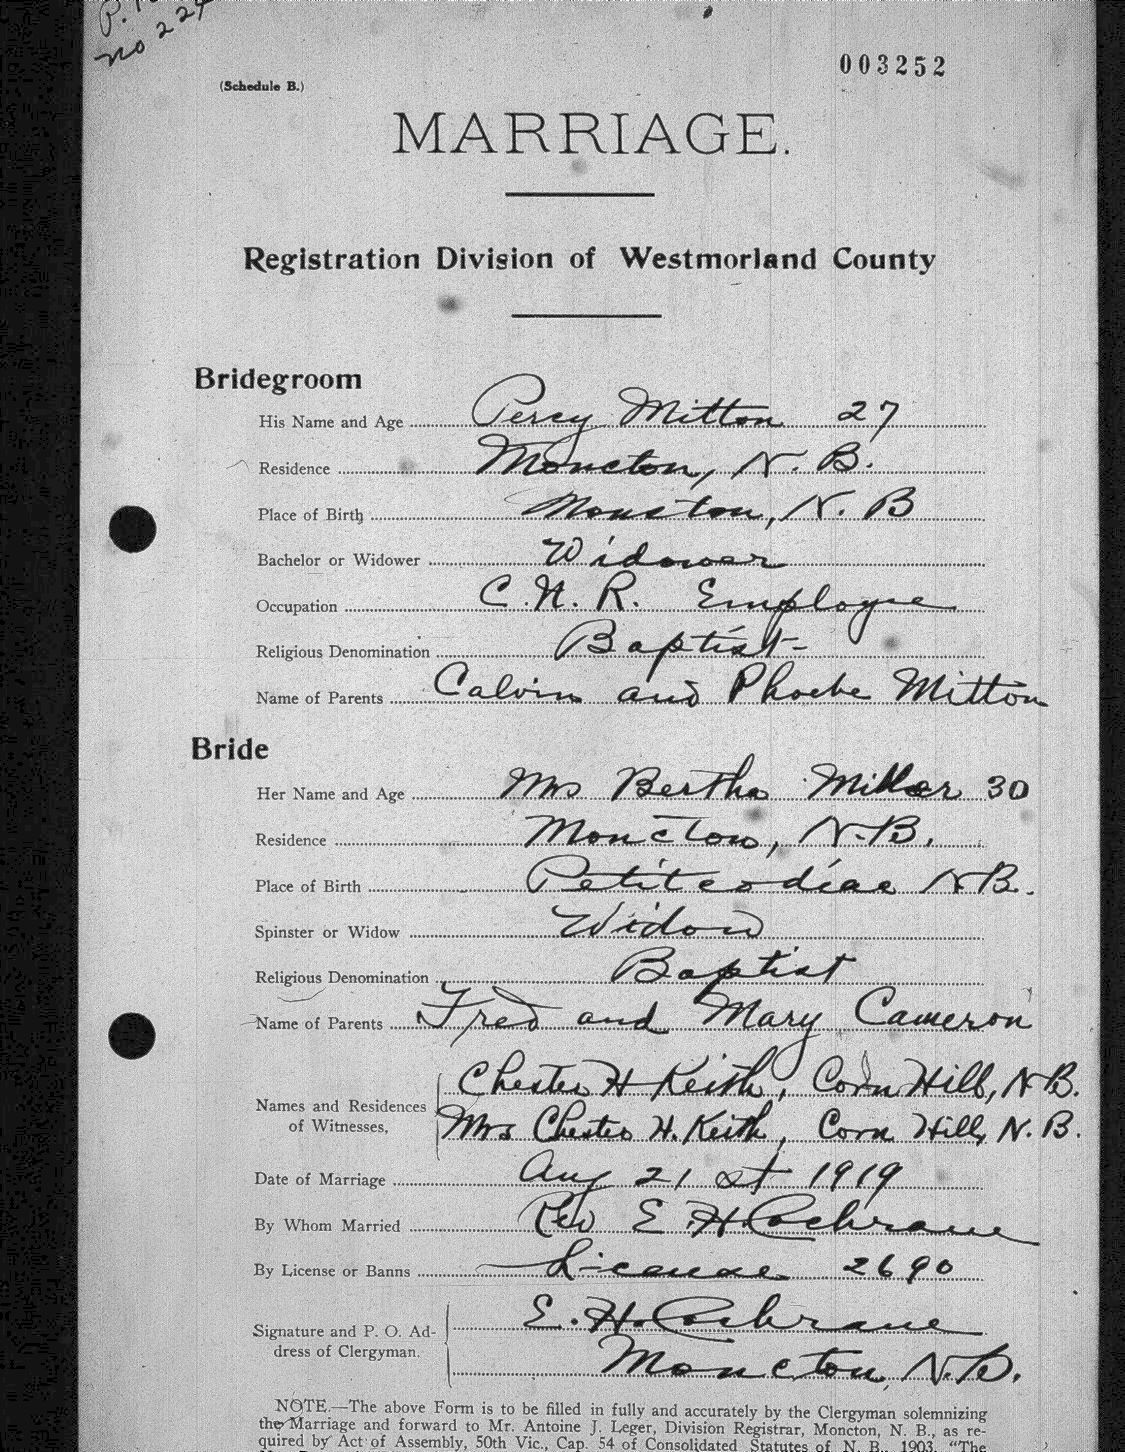 no 224
003252
(Schedule B.)
MARRIAGE.
Registration Division of Westmorland County
Bridegroom
His Name and Age Percy Mitton 27
Residence Moncton, N. B.
Place of Birth Moncton, N. B
Bachelor or Widower Widower
Occupation C. N. R. Employee
Religious Denomination Baptist
Name of Parents Calvin and Phoebe Mitton
Bride
Her Name and Age Mrs Bertha Miller 30
Residence Moncton, N. B.
Place of Birth Petitcodiac N B.
Spinster or Widow Widow
Religious Denomination Baptist
Name of Parents Fred and Mary Cameron
Names and Residences of Witnesses, Chester H Keith, Corn Hill, N B.
Mrs Chester H. Keith, Corn Hill, N. B.
Date of Marriage Aug 21 st 1919
By Whom Married Rev E. H. Cochrane
By License or Banns License 2690
Signature and P. O. Ad- E. H. Cochrane
dress of Clergyman. Moncton, N. B.
NOTE.—The above Form is to be filled in fully and accurately by the Clergyman solemnizing
the Marriage and forward to Mr. Antoine J. Leger, Division Registrar, Moncton, N. B., as re-
quired by Act of Assembly, 50th Vic., Cap. 54 of Consolidated Statutes of N. B., 1903. "The